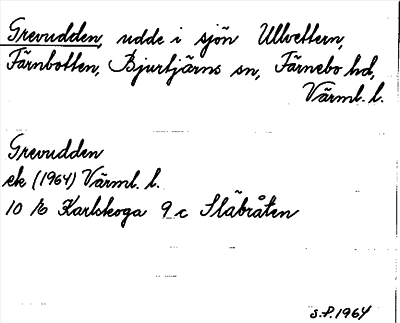 Grevudden, udde i sjön Ullvettern,
Färnbotten, Bjurtjärns sn, Färnebo hd,
Värml. l.
Grevudden
ek (1964) Värml. l.
10 E Karlskoga 9 c Släbråten
S.F. 1964